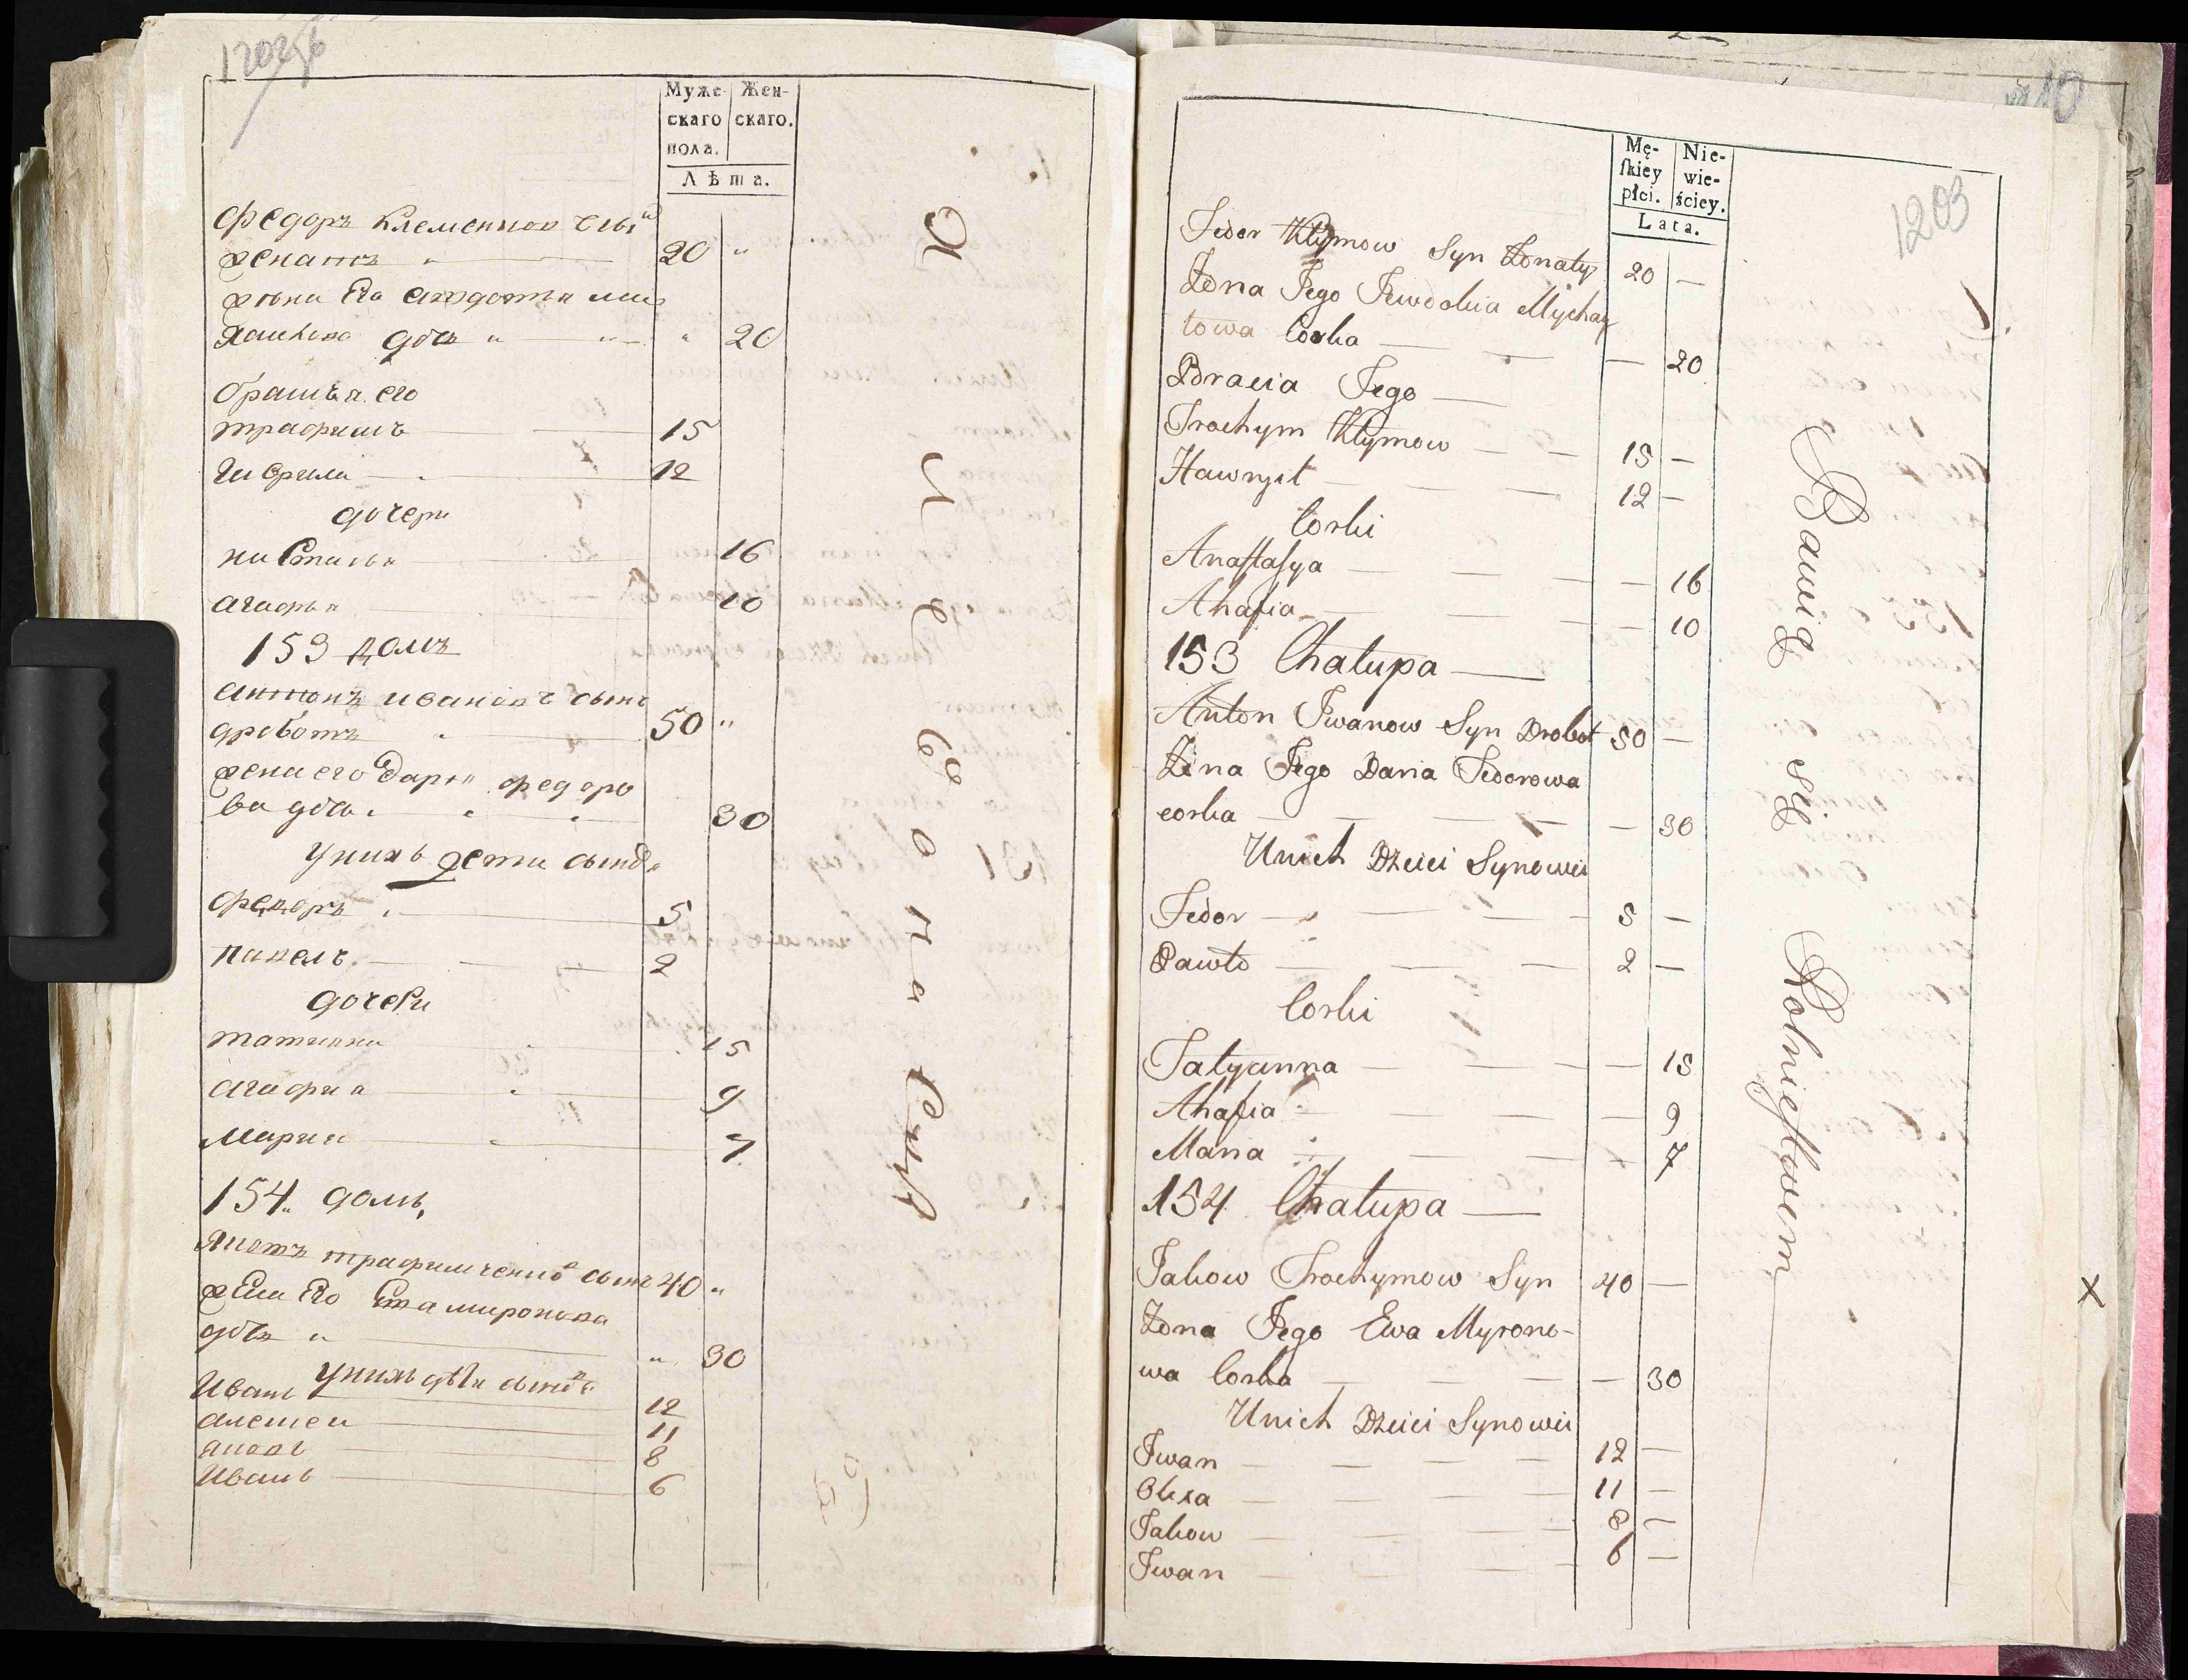 Муже-
скаго
пола.
Жен-
скаго.
Лѣта.
Федоръ Клеменков
женатъ 20 "
жъна Его
дочь " " 20
братья его
трафимъ 15
12
дочери
настасья 16
агафья 10
153 домъ
антонъ иванов сынъ
дроботъ 50 "
жена его Дарья федоро
ва дочь 30
уних дети сынов
федоръ 5
павелъ 2
дочери
татияна 15
агафия 9
мария 7
154 домъ
трафимченко сынъ 40 "
Его миронова
дочь " " 30
уних дѣти
Иванъ 12
алексей 11
яков 8
Иванъ 6
Mę-
ſkiey
płci.
Nie-
wie-
ściey.
Lata.
1203
Fedor Klymow Syn Żonaty 20 —
Żona Jego Jewdokia Mychay
łowa Corka — — 20
Bracia Jego —
Trochym Klymow — — 15 —
Hawryił — — — 12 —
Corki
Anaſtaſya — — — — 16
Ahafia — — — — 10
153 Chałupa —
Anton Iwanow Syn Drobot 50 —
Żona Jego Daria Fedorowa
corka — — — — — 30
Unich Dzieci Synowie
Fedor — — — — 5 —
Pawło — — — 2 —
Corki
Tatyanna — — — — 15
Ahafia — — — — 9
Maria — — — 7
154 Chałupa —
Jakow Trochymow Syn 40 —
Żona Jego Ewa Myrono-
wa Corka — — — — 30
Unich Dzieci Synowie
Iwan — — — — 12 —
Olexa — — — — 11 —
Jakow — — — — 8 —
Iwan — — — — 6 —
Bawią się Rolnictwem
X